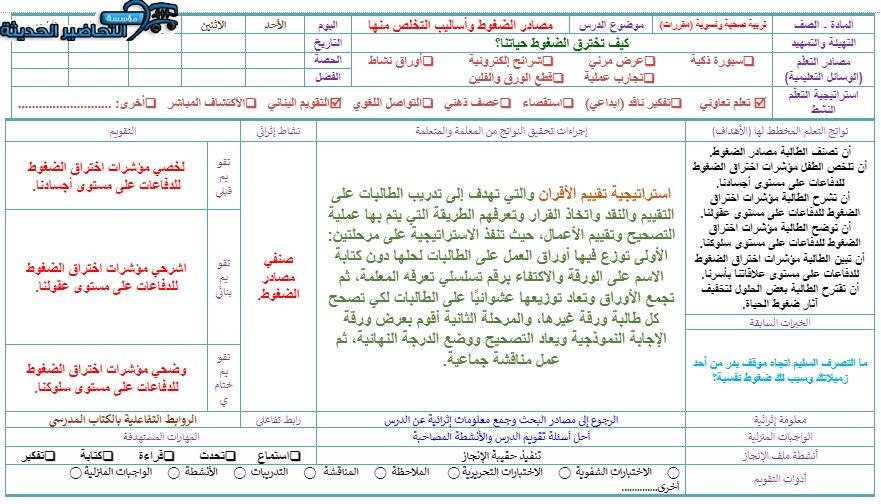 مؤسسة
التحاضير الحديثة
المادة ـ الصف
تربية صحية ونسوية (مقررات)
موضوع الدرس
مصادر الضغوط وأساليب التخلص منها
اليوم
الأحد
الاثنين
التهيئة والتمهيد
كيف تخترق الضغوط حياتنا؟
التاريخ
مصادر التعلّم
(الوسائل التعليمية)
سبورة ذكية
عرض مرئي
شرائح إلكترونية
أوراق نشاط
الحصة
تجارب عملية
قطع الورق والفلين
الفصل
استراتيجية التعلّم
النشط
تعلم تعاوني
تفكير ناقد (ابداعي)
استقصاء
عصف ذهني
التواصل اللغوي
التقويم البنائي
الاكتشاف المباشر
أخرى: ..........................
نواتج التعلم المخطط لها (الأهداف)
إجراءات تحقيق النواتج من المعلمة والمتعلمة
نشاط إثرائي
التقويم
أن تصنف الطالبة مصادر الضغوط.
أن تلخص الطفل مؤشرات اختراق الضغوط
للدفاعات على مستوى أجسادنا.
أن تشرح الطالبة مؤشرات اختراق
الضغوط للدفاعات على مستوى عقولنا.
أن توضح الطالبة مؤشرات اختراق
الضغوط للدفاعات على مستوى سلوكنا.
أن تبين الطالبة مؤشرات اختراق الضغوط
للدفاعات على مستوى علاقاتنا بأسرنا.
أن تقترح الطالبة بعض الحلول لتخفيف
آثار ضغوط الحياة.
الخبرات السابقة
ما التصرف السليم اتجاه موقف بدر من أحد
زميلاتك وسبب لك ضغوط نفسية؟
استراتيجية تقييم الأقران والتي تهدف إلى تدريب الطالبات على
التقييم والنقد واتخاذ القرار وتعرفهم الطريقة التي يتم بها عملية
التصحيح وتقييم الأعمال، حيث تنفذ الاستراتيجية على مرحلتين:
الأولى توزع فيها أوراق العمل على الطالبات لحلها دون كتابة
الاسم على الورقة والاكتفاء برقم تسلسلي تعرفه المعلمة، ثم
تجمع الأوراق وتعاد توزيعها عشوائيًا على الطالبات لكي تصحح
كل طالبة ورقة غيرها، والمرحلة الثانية أقوم بعرض ورقة
الإجابة النموذجية ويعاد التصحيح ووضع الدرجة النهائية، ثم
عمل مناقشة جماعية.
صنفي
مصادر
الضغوط.
تقو
يم
قبلي
لخصي مؤشرات اختراق الضغوط
للدفاعات على مستوى أجسادنا.
تقو
يم
بنائي
اشرحي مؤشرات اختراق الضغوط
للدفاعات على مستوى عقولنا.
تقو
يم
ختام
ي
وضحي مؤشرات اختراق الضغوط
للدفاعات على مستوى سلوكنا.
معلومة إثرائية
الرجوع إلى مصادر البحث وجمع معلومات إثرائية عن الدرس
رابط تفاعلي
الروابط التفاعلية بالكتاب المدرسي
الواجبات المنزلية
أحل أسئلة تقويم الدرس والأنشطة المصاحبة
المهارات المستهدفة
أنشطة ملف الإنجاز
تنفيذ حقيبة الإنجاز
استماع
تحدث
قراءة
كتابة
تفكير
أدوات التقويم
الاختبارات الشفوية
الاختبارات التحريرية
الملاحظة
المناقشة
التدريبات
الأنشطة
الواجبات المنزلية
أخرى.............